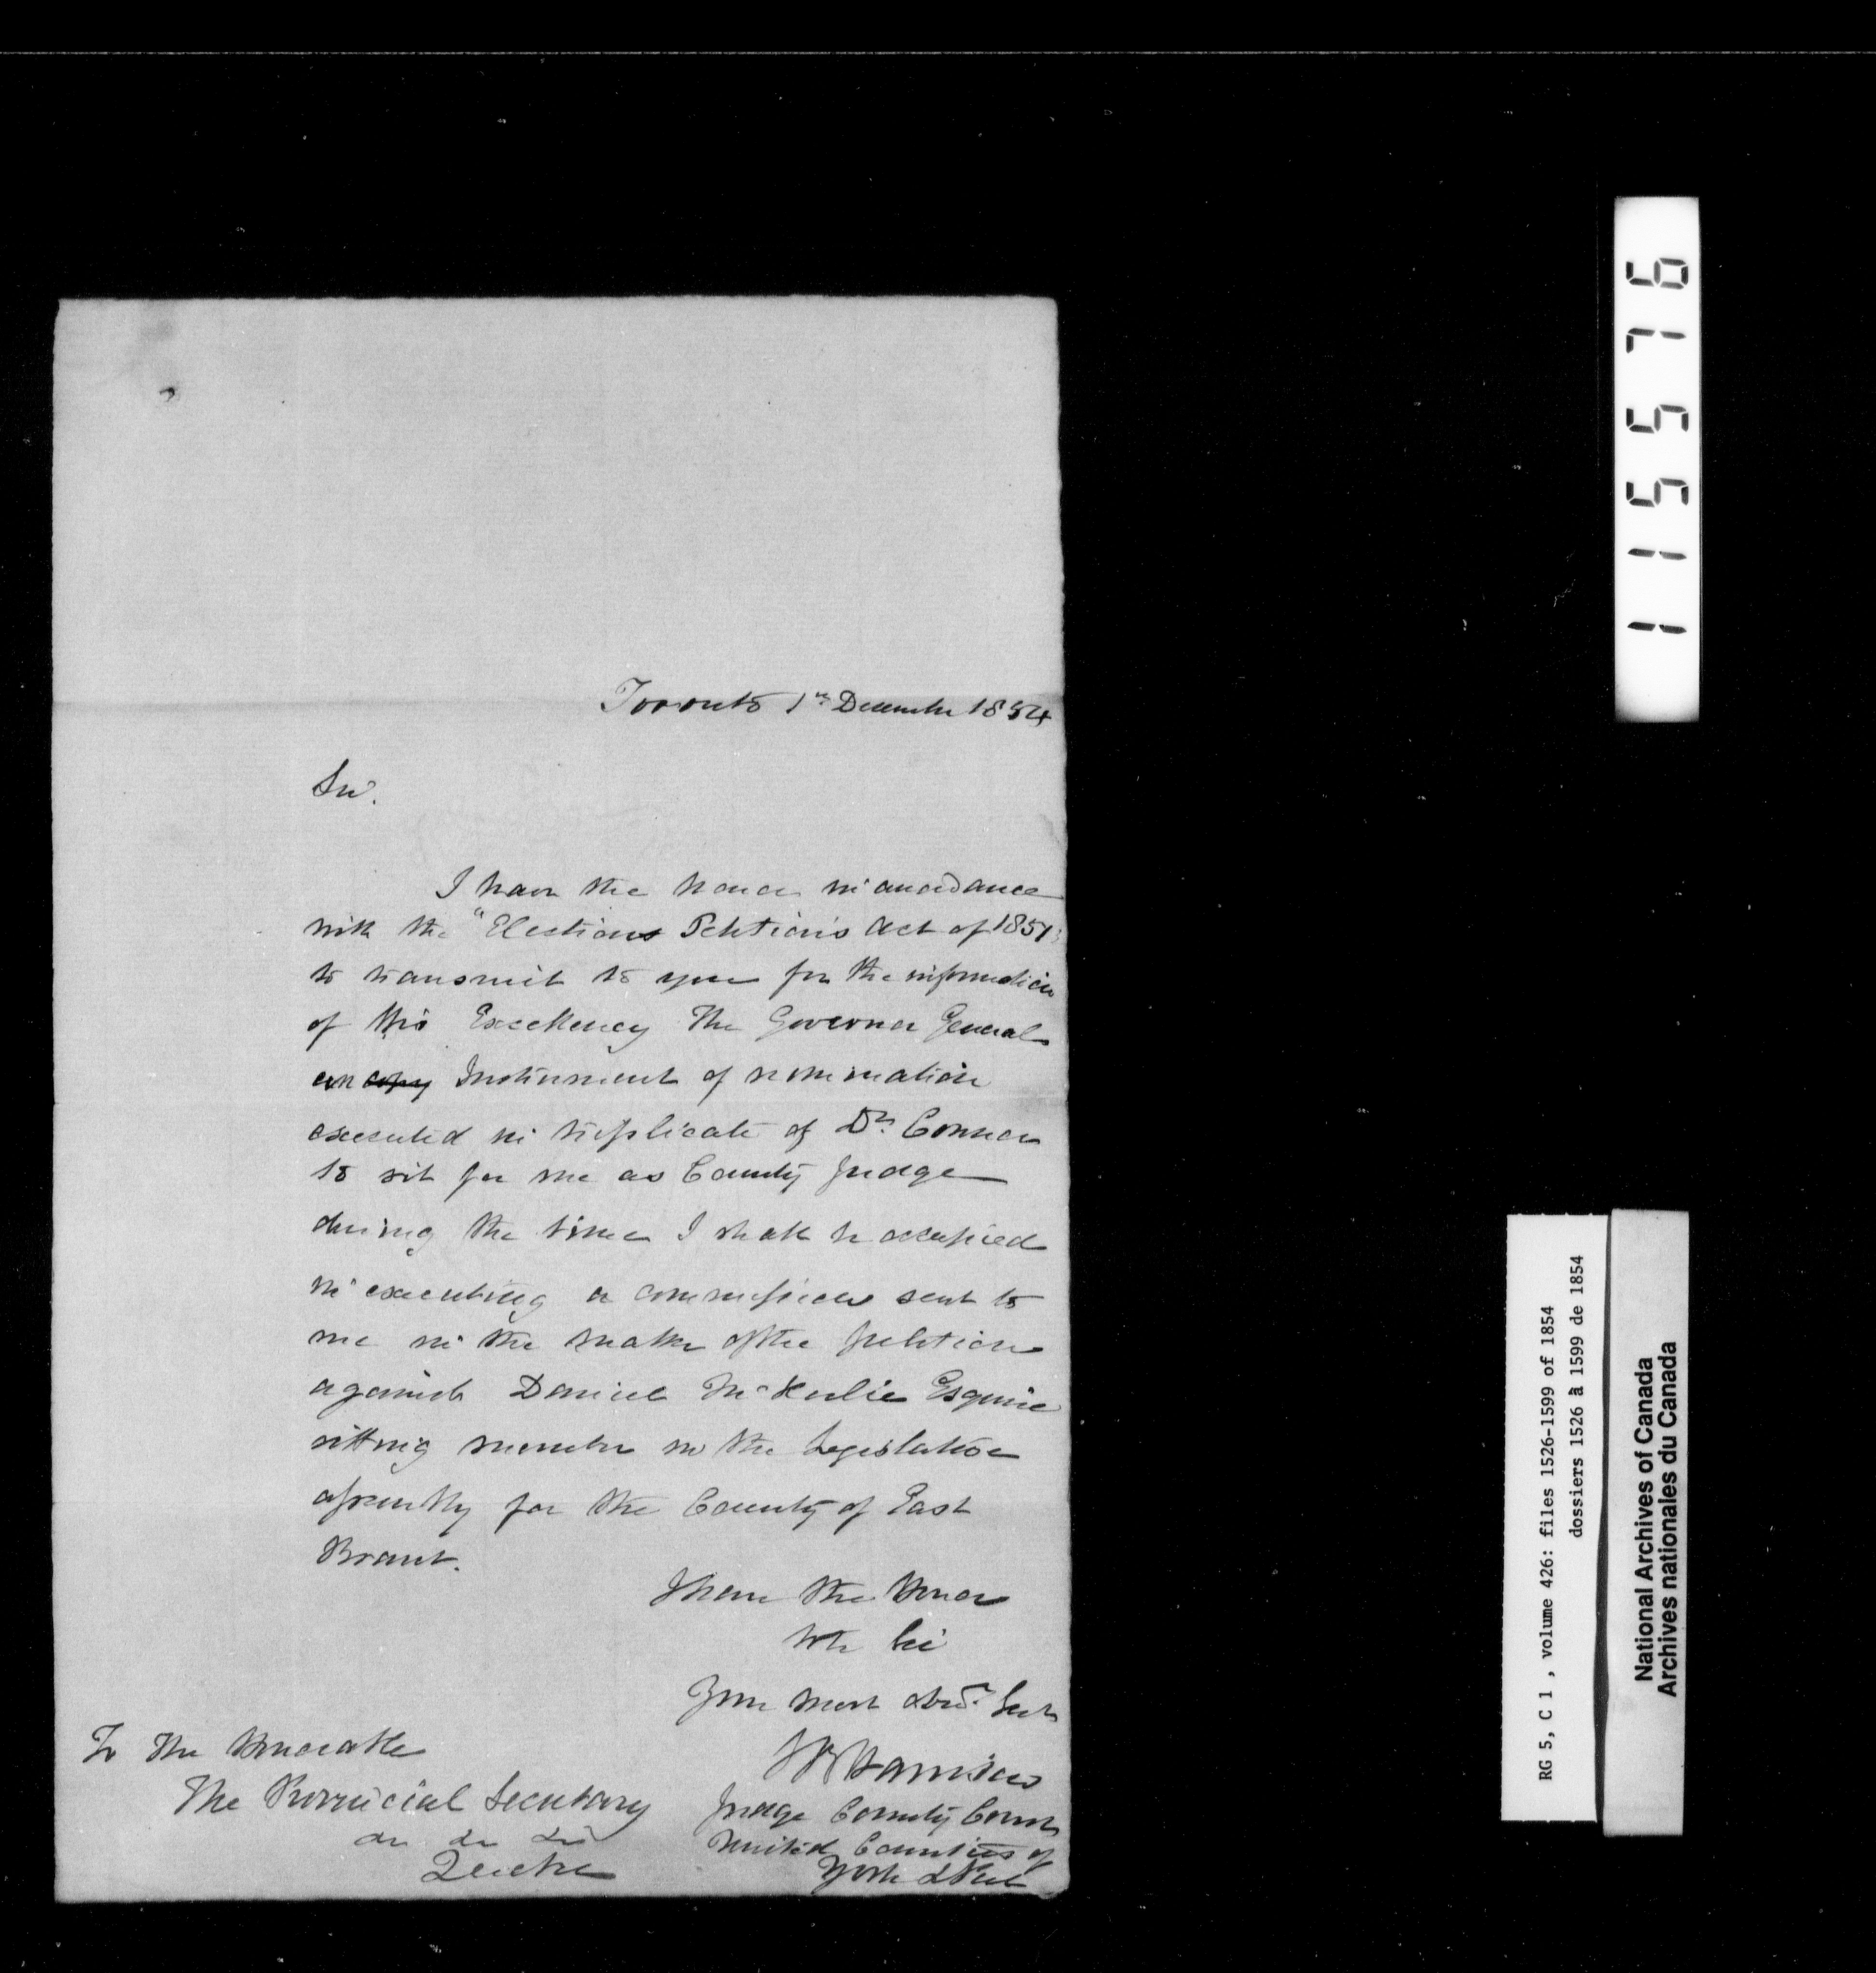 Toronto 1st December 1854
Sir.
I have the honor in accordance
with the "Elections Petitions Act of 1851"
to transmit to you for the information
of His Excellency The Governor General
an copy Instrument of nomination
executed in triplicate of Dr. Connor
to sit for me as County Judge
during the time I shall be occupied
in executing a commission sent to
me in the matter of the petition
against Daniel McKerlie Esquire
sitting member in the Legislative
assembly for the County of East
Brant.
I have the honor
to be Sir
Your most obed. Servt
SB Harrison
Judge County Court
United Counties of
York & Peel
To The Honorable
The Provincial Secretary
&c &c &c
Quebec
115576
RG 5, C 1 , volume 426: files 1526-1599 of 1854
dossiers 1526 à 1599 de 1854
National Archives of Canada
Archives nationales du Canada